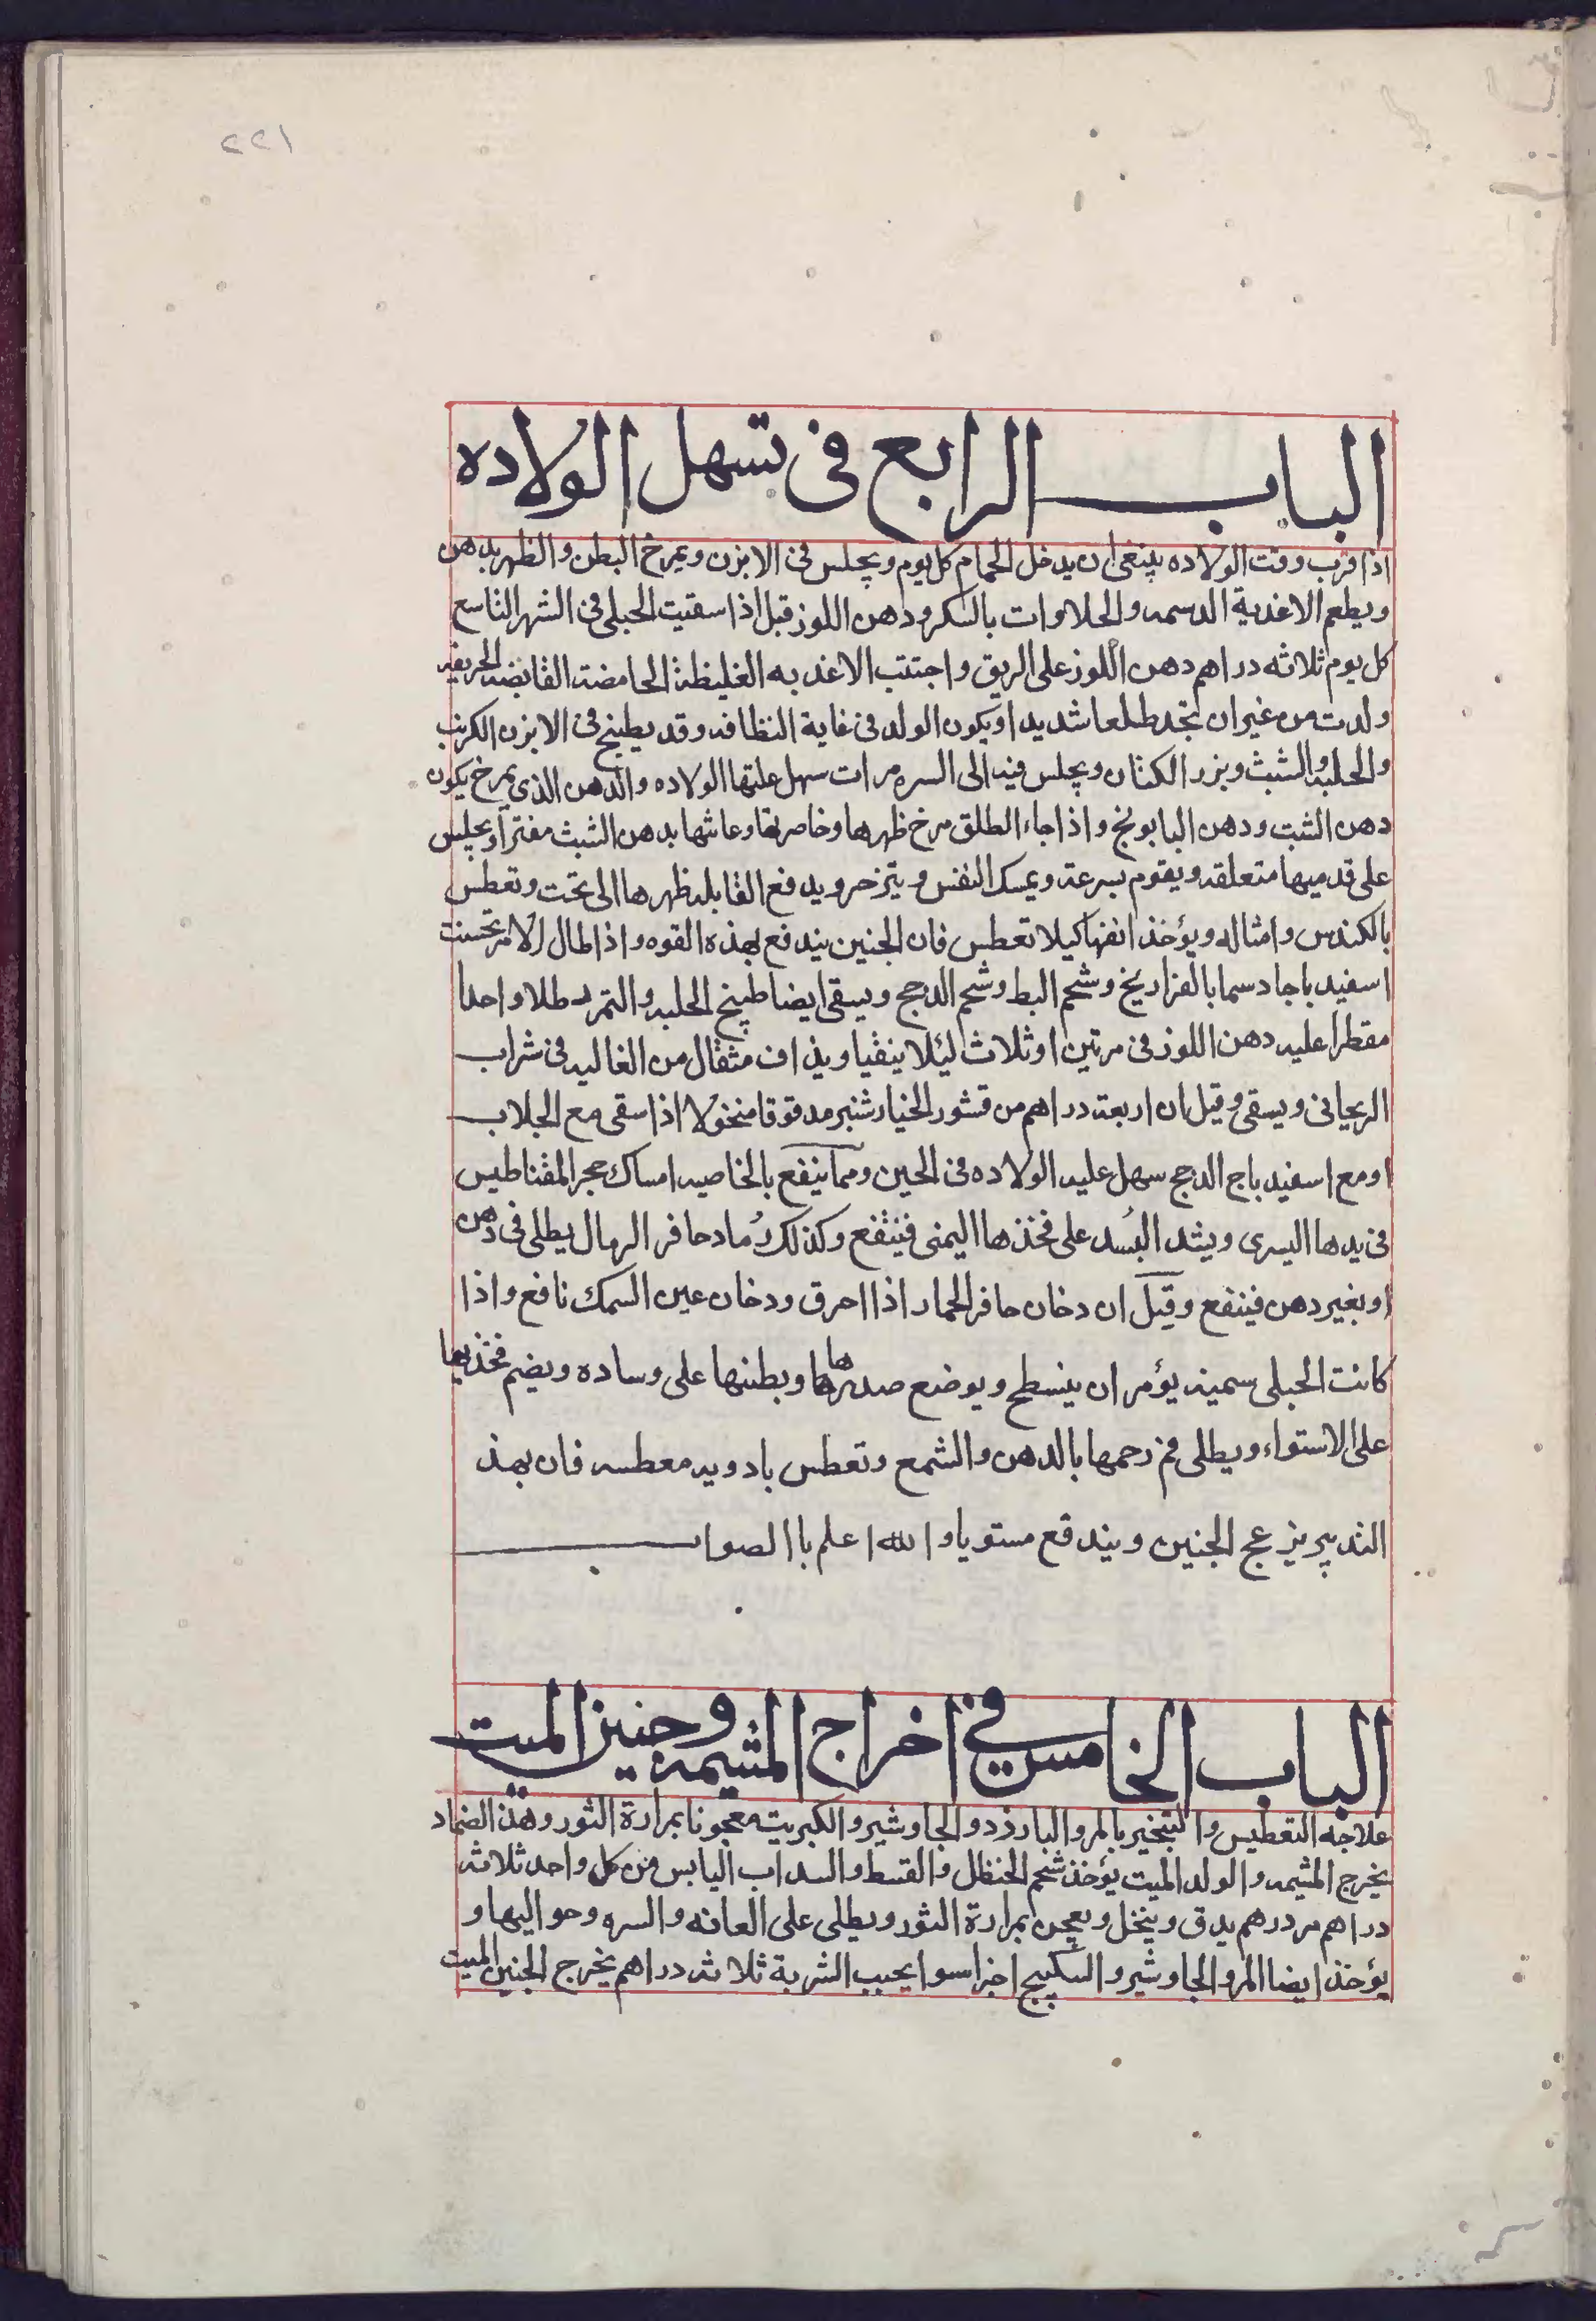 ٢٢١
الباب الرابع فى تسهل الولاده
اذا قرب وقت الولاده ينبغى ان يدخل الحمام كل يوم ويجلس فى الابزن ويمرخ البطن والظهر بدهن
ويطعم الاغذية الدسمه والحلاوات بالسكر ودهن اللوز قبل اذا سقيت الحبلى فى الشهر التاسع
كل يوم ثلاثه دراهم دهن اللوز على الريق واجتنب الاغذيه الغليظة الحامضة القابضه الحريفه
ولدت من غير ان تجد طلعا شديدا ويكون الولد فى غاية النظافه وقد يطبخ فى الابزن الكرنب
والحلبه والشبث وبزر الكتان ويجلس فيه الى السره مرات سهل عليها الولاده والدهن الذى يمرخ يكون
دهن الشبت ودهن البابونج واذا جاء الطلق مرخ ظهرها وخاصرتها وعانتها بدهن الشبث مفترا ويجلس
على قدميها متعلقه ويقوم بسرعة ويمسك النفس ويتزحر ويدفع القابله ظهرها الى تحت وتعطس
بالكندس وامثاله ويؤخذ انفها كيلا تعطس فان الجنين يندفع بهذه القوه واذا طال الامر تحسنت
اسفيدباجا دسما بالفراريخ وشحم البط وشحم الدجج ويسقى ايضا طبيخ الحلبه والتمر طلا واحدا
مقطرا عليه دهن اللوز فى مرتين او ثلاث ليئلا ينقيا ويذاف مثقال من الغاليه فى شراب
الريحانى ويسقى وقيل ان اربعة دراهم من قشور الخيار شنبر مدقوقا منخولا اذا سقى مع الجلاب
او مع اسفيدباج الدجج سهل عليه الولاده فى الحين ومما ينفع بالخاصيه امساك حجر المقناطيس
فى يدها اليسرى ويشد البُسد على فخذها اليمنى فينفع وكذلك رُماد حافر الرمال يطلى فى دهن
او بغير دهن فينفع وقيل ان دخان حافر الحمار اذا احرق ودخان عين السمك نافع واذا
كانت الحبلى سمينه يؤمر ان ينسطح ويوضع صدرها وبطنها على وساده ويضم فخذيها
على الاستواء ويطلى فم رحمها بالدهن والشمع وتعطس بادويه معطسه فان بهذ
التدبير يزعج الجنين ويندقع مستويا والله اعلم باالصواب
الباب الخامس فى اخراج المشيمه وجنين الميت
علاجه التعطيس والتبخير بالمر والبارذد والجاوشير والكبريت معجونا بمرارة الثور وهذا الضماد
يخرج المشيمه والولد الميت يؤخذ شحم الحنظل والقسط والسداب اليابس من كل واحد ثلاثه
دراهم مر درهم يدق وينخل ويعجن بمرارة الثور ويطلى على العانه والسره وحواليها و
يؤخذ ايضا المر والجاوشير والسكبينج اجزاسوا يحبب الشربة ثلاثه دراهم يخرج الجنين الميت